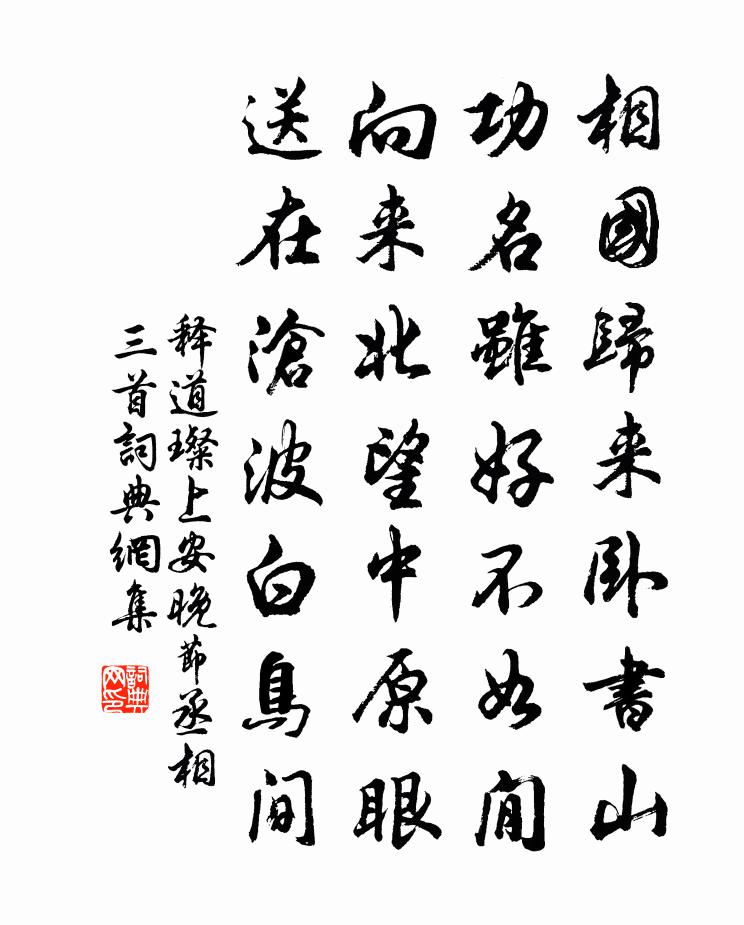 相國歸来卧書山
功名雖好不如閒
向来北望中原眼
送在滄波白鳥間
释道璨上安晚節丞相
三首詞典網集
詞典網印